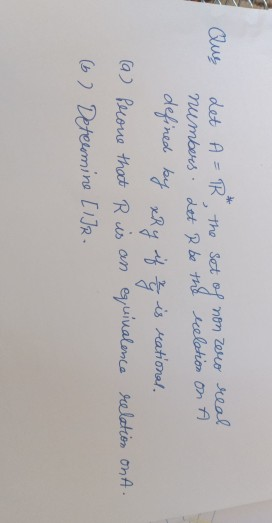 Ques Let A = ℝ*, the set of non zero real
numbers. Let R be the relation on A
defined by xRy if x/y is rational.
(a) Prove that R is an equivalence relation on A.
(b) Determine [1]R.